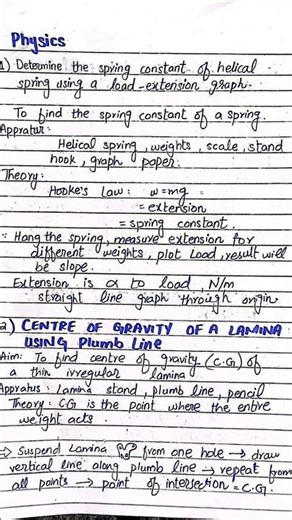 Physics
1) Determine the spring constant of helical
spring using a load-extension graph.
To find the spring constant of a spring.
Appratus:
Helical spring, weights, scale, stand
hook, graph paper.
Theory:
Hooke's Law: w=mg =
= extension
= spring constant.
: Hang the spring, measure extension for
different weights, plot Load, result will
be slope.
Extension is α to load, N/m
straight line graph through origin
2) CENTRE OF GRAVITY OF A LAMINA
USING Plumb Line
Aim: To find centre of gravity (C.G) of
a thin irregular lamina
Appratus: Lamina stand, plumb line, pencil
Theory: CG is the point where the entire
weight acts.
⇒ Suspend Lamina from one hole → draw
vertical line along plumb line → repeat from
all points → point of intersection = C.G.